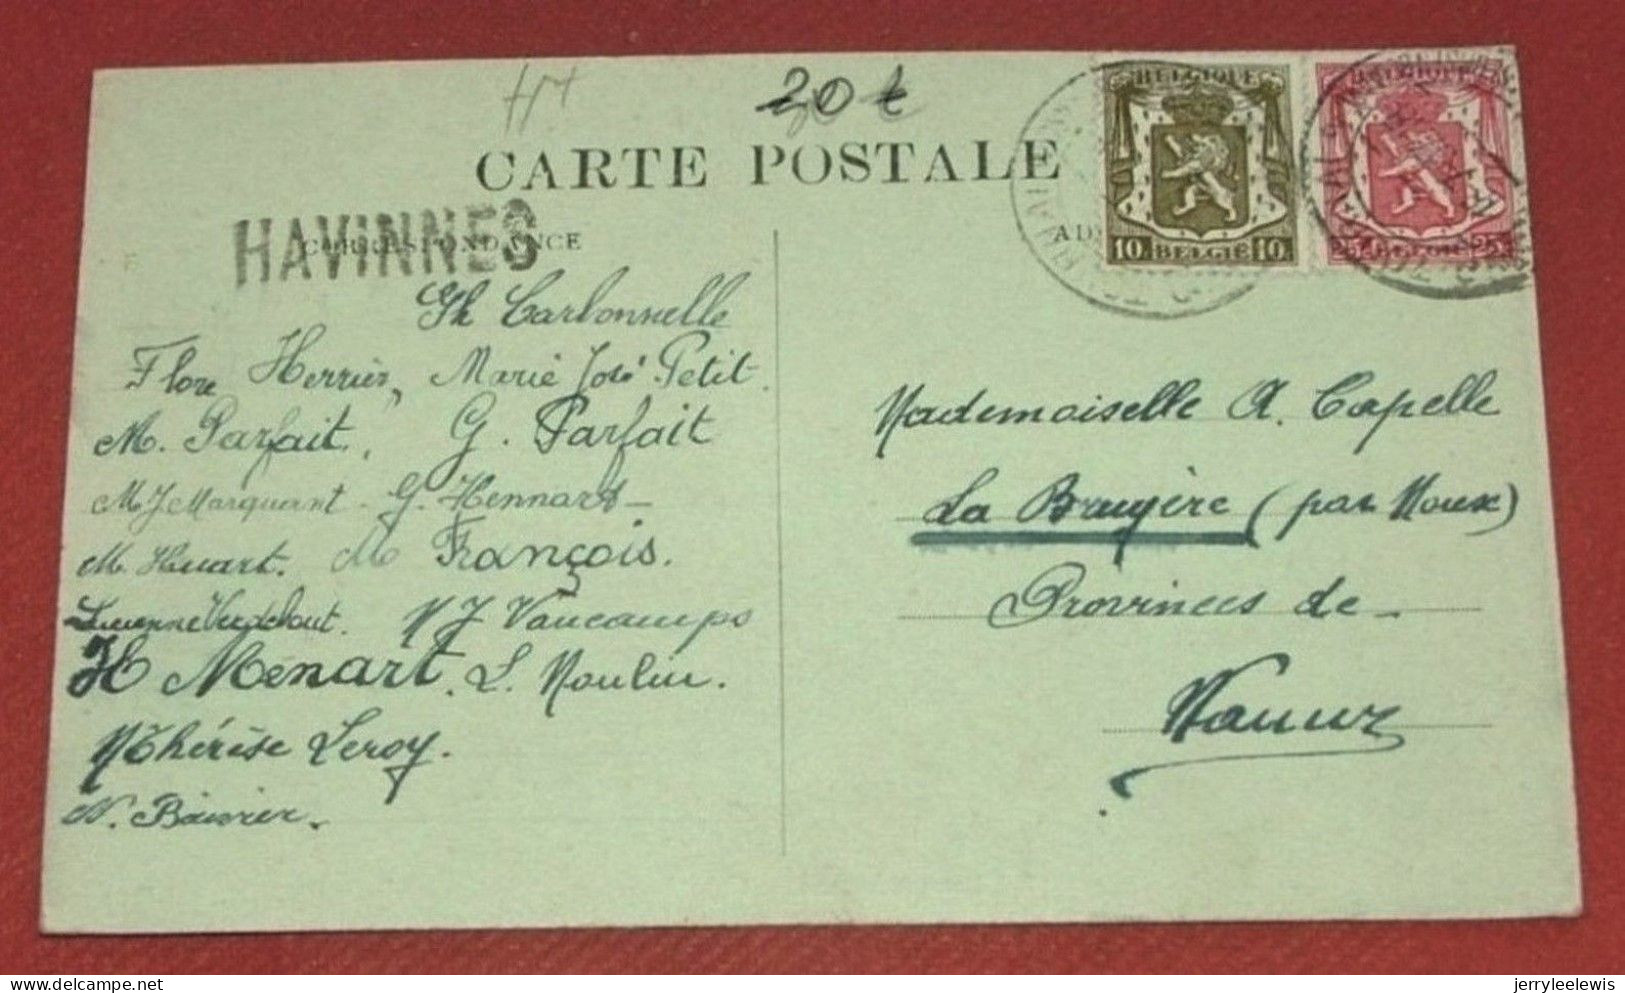 20 €
CARTE POSTALE
HAVINNES
CORRESPONDANCE
BELGIQUE
10 BELGIE 10
BELGIQUE
25 BELGIE 25
Gh Carbonnelle
Flore Herrier, Marie José Petit.
M. Parfait, G. Parfait
M J Marquant - G. Hennart -
M. Huart. M François.
M J Vancamps
H Menart. L. Moulin.
M Thérèse Leroy.
N.
Mademoiselle A. Capelle
La Bruyère (par Noux)
Provinces de -
Namur
jerryleelewis
delcampe.net